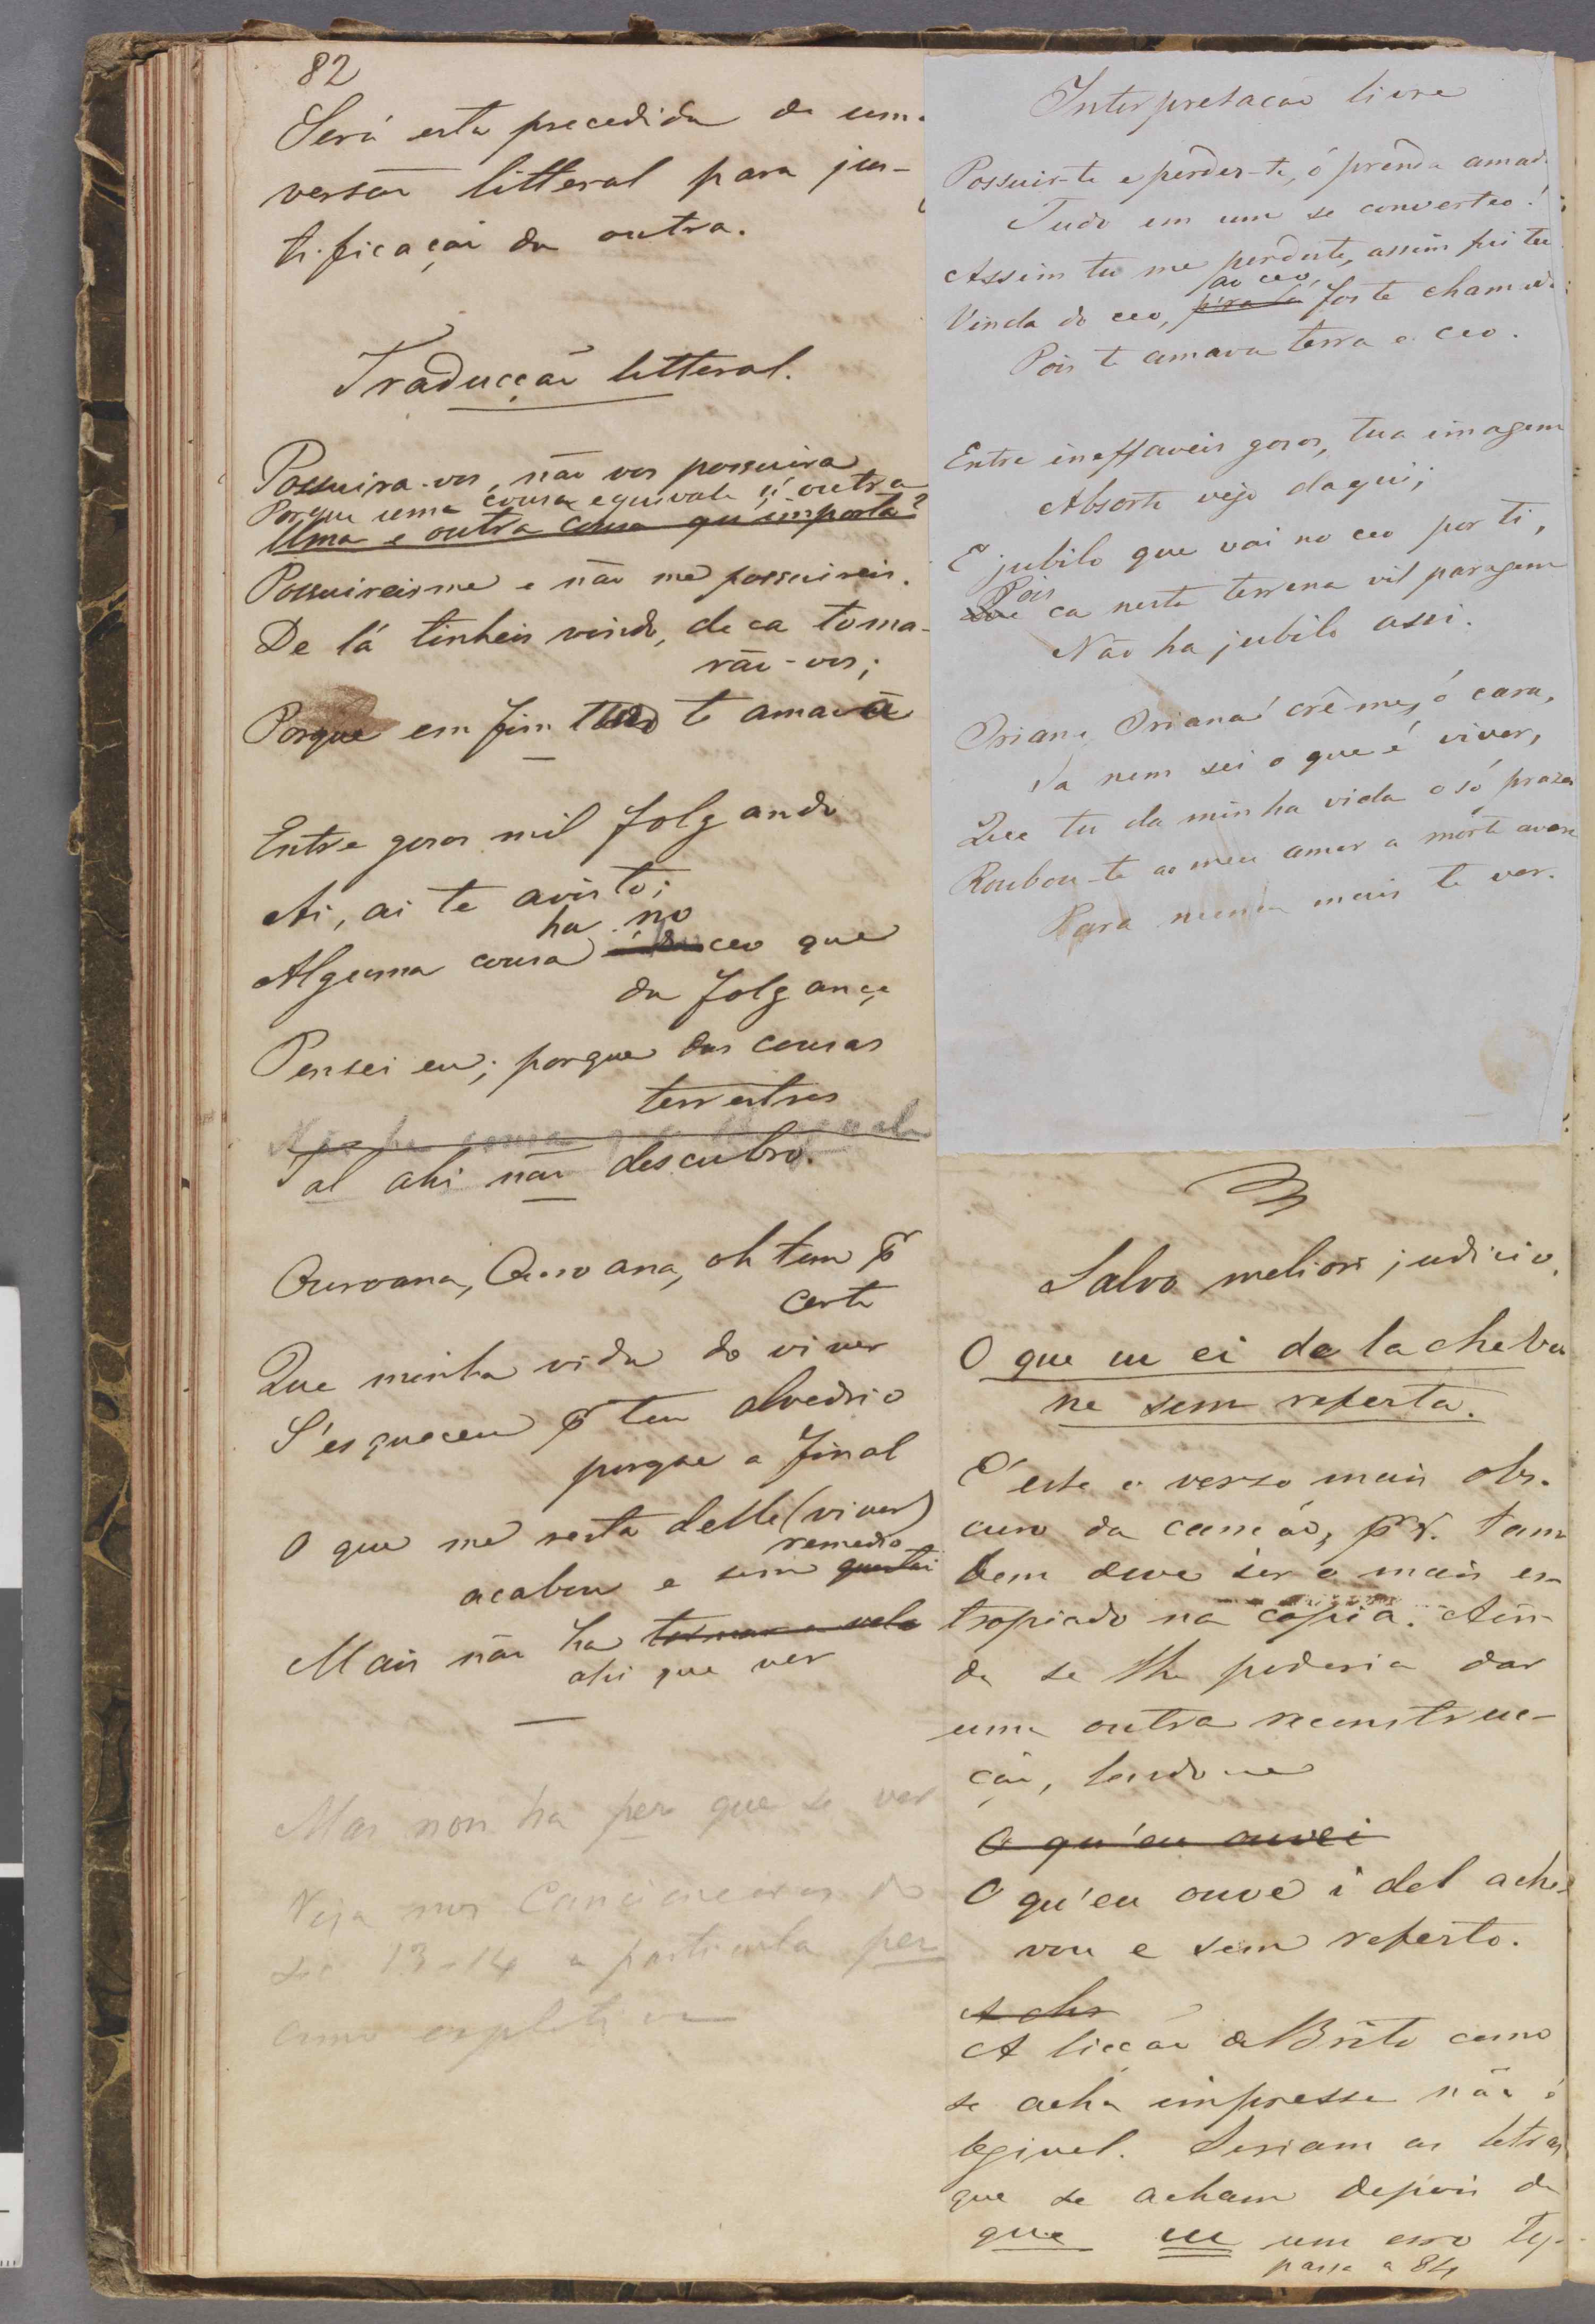 82
Será esta precedida de uma
versão litteral para jus-
tificação da outra.
Traducção litteral.
Possuira-vos, não vos possuira
Porque uma cousa equivale á outra
Uma e outra cousa qu'importa?
Possuireisme e não me possuireis.
De lá tinheis vindo, de ca toma-
rão-vos;
Porque em fim tudo te amava
Entre gosos mil folgando
Ai, ai te avisto;
ha no
Alguma cousa ceo que
da folgança
Pensei eu; porque das cousas
terrestres
Tal ahi não descubro.
Ouroana, Ouroana, oh tem pr
certo
Que minha vida do viver
S'esqueceu pr teu alvedrio
porque a final
O que me resta delle (viver)
remedio
acabou e sem questão
Mais não ha tornar a vela
ahi que ver
Mas non ha per que se ver
Veja nos Cancioneiros do
Sec 13-14 a particula per
como expletiva
Interpretação livre
Possuir-te e perder-te, ó prenda amada
Tudo em um se converteo!
Assim tu me perdeste, assim fui teu
ao ceo,
Vinda do ceo, p'ra lá foste chamada:
Pois te amava terra e ceo.
Entre ineffaveis gosos, tua imagem
Absorto vejo daqui;
E jubilo que vai no ceo por ti,
Pois
Que ca nesta terrena vil paragem
Não ha jubilo assi.
Oriana, Oriana! crê-me, ó cara,
Ja nem sei o que é viver,
Que tu da minha vida o só prazer
Roubou-te ao meu amor a morte avara
Para nunca mais te ver.
Salvo meliori judicio.
O que eu ei de la cheba
ne sem referta.
É este o verso mais obs-
curo da canção, pr q. tam
bem deve ser o mais es-
tropiado na copia. Ain-
da se lhe poderia dar
uma outra reconstruc-
ção, lendo-se
O qu'eu ouvei
O qu'eu ouve i del ache
vou e sem referto.
A cho
A licção de Brito como
se acha impressa não é
legivel. Seriam as letras
que se acham depois de
que eu um erro ty-
passa a 84